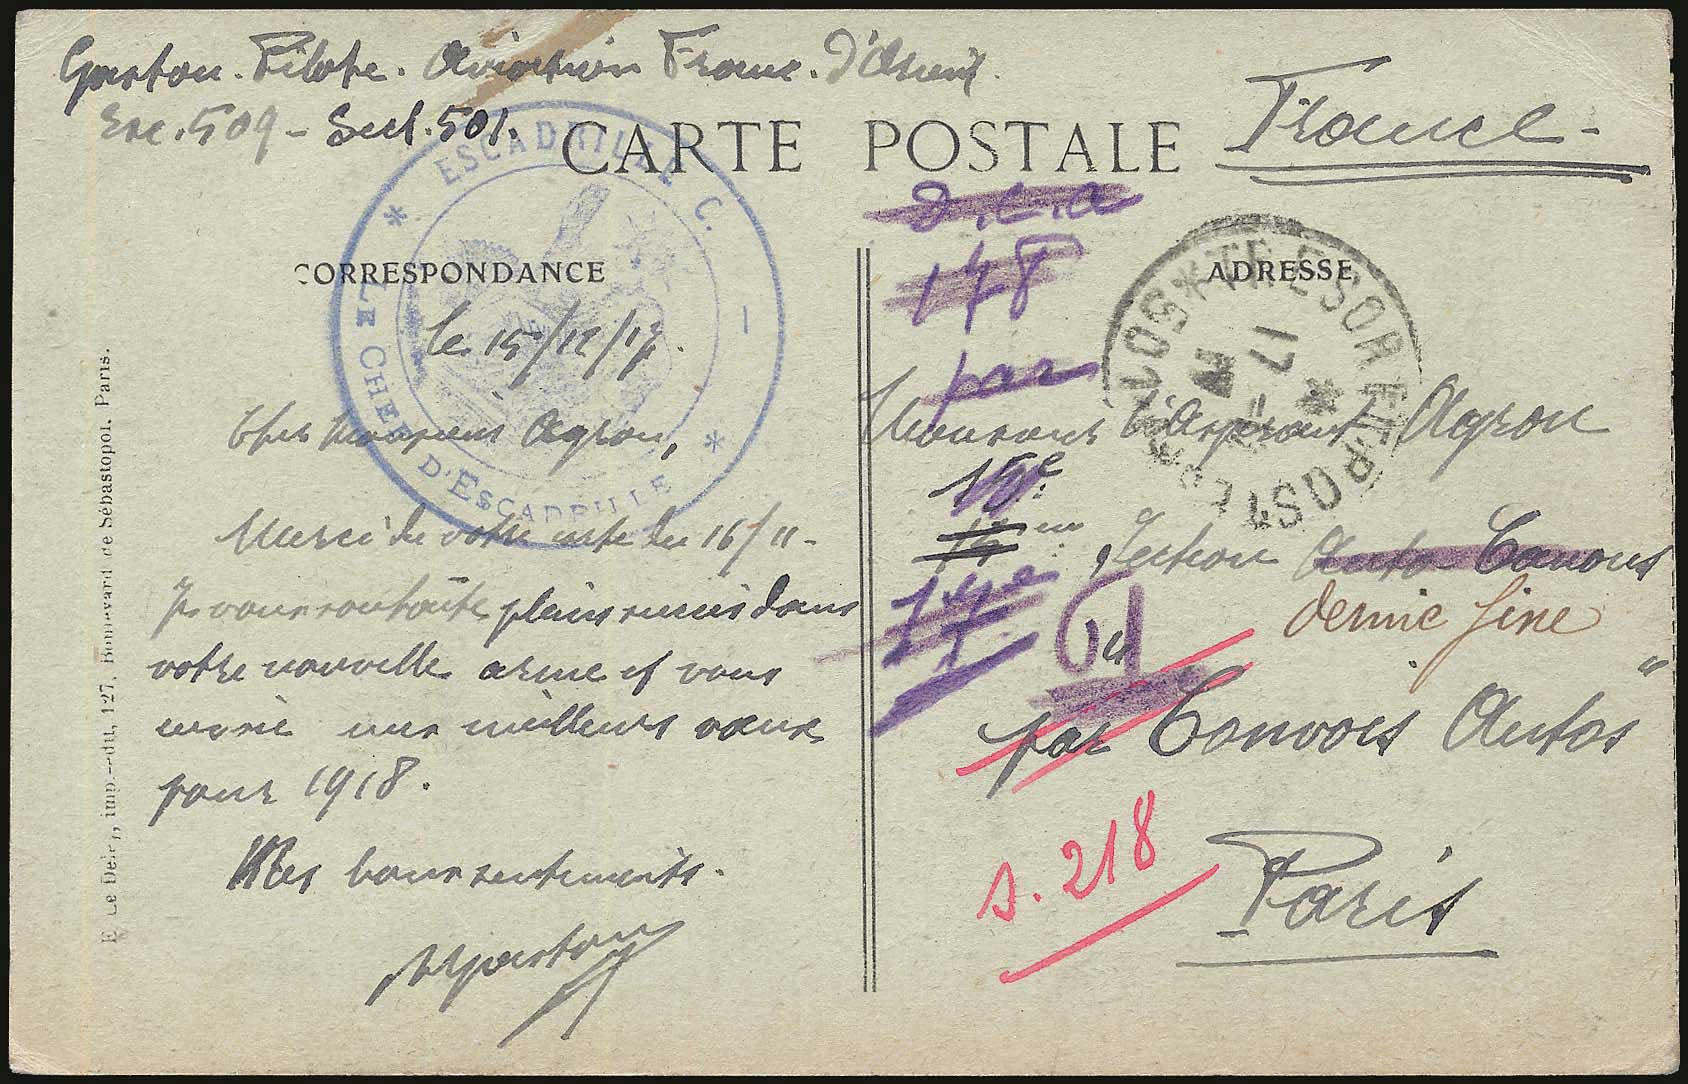 Gaston. Pilote. Aviation Franc. d'Orient.
Esc. 509 - Sect. 501.
CARTE POSTALE
France -
ESCADRILLE C.
LE CHEF D'ESCADRILLE
D.C.A
178
par
CORRESPONDANCE
ADRESSE
TRESOR ET POSTES
17
le 15/12/17.
Cher Monsieur Agron,
Merci de votre carte du 16/11 -
Je vous souhaite plein succès dans
votre nouvelle arme et vous
envoie mes meilleurs vœux
pour 1918.
Mes bons sentiments.
Gaston
Monsieur Agron
15e
Section Auto Canons
17e
par Convois Autos
s. 218
Paris
E. Le Deley, imp.-édit., 127, Boulevard de Sébastopol, Paris.